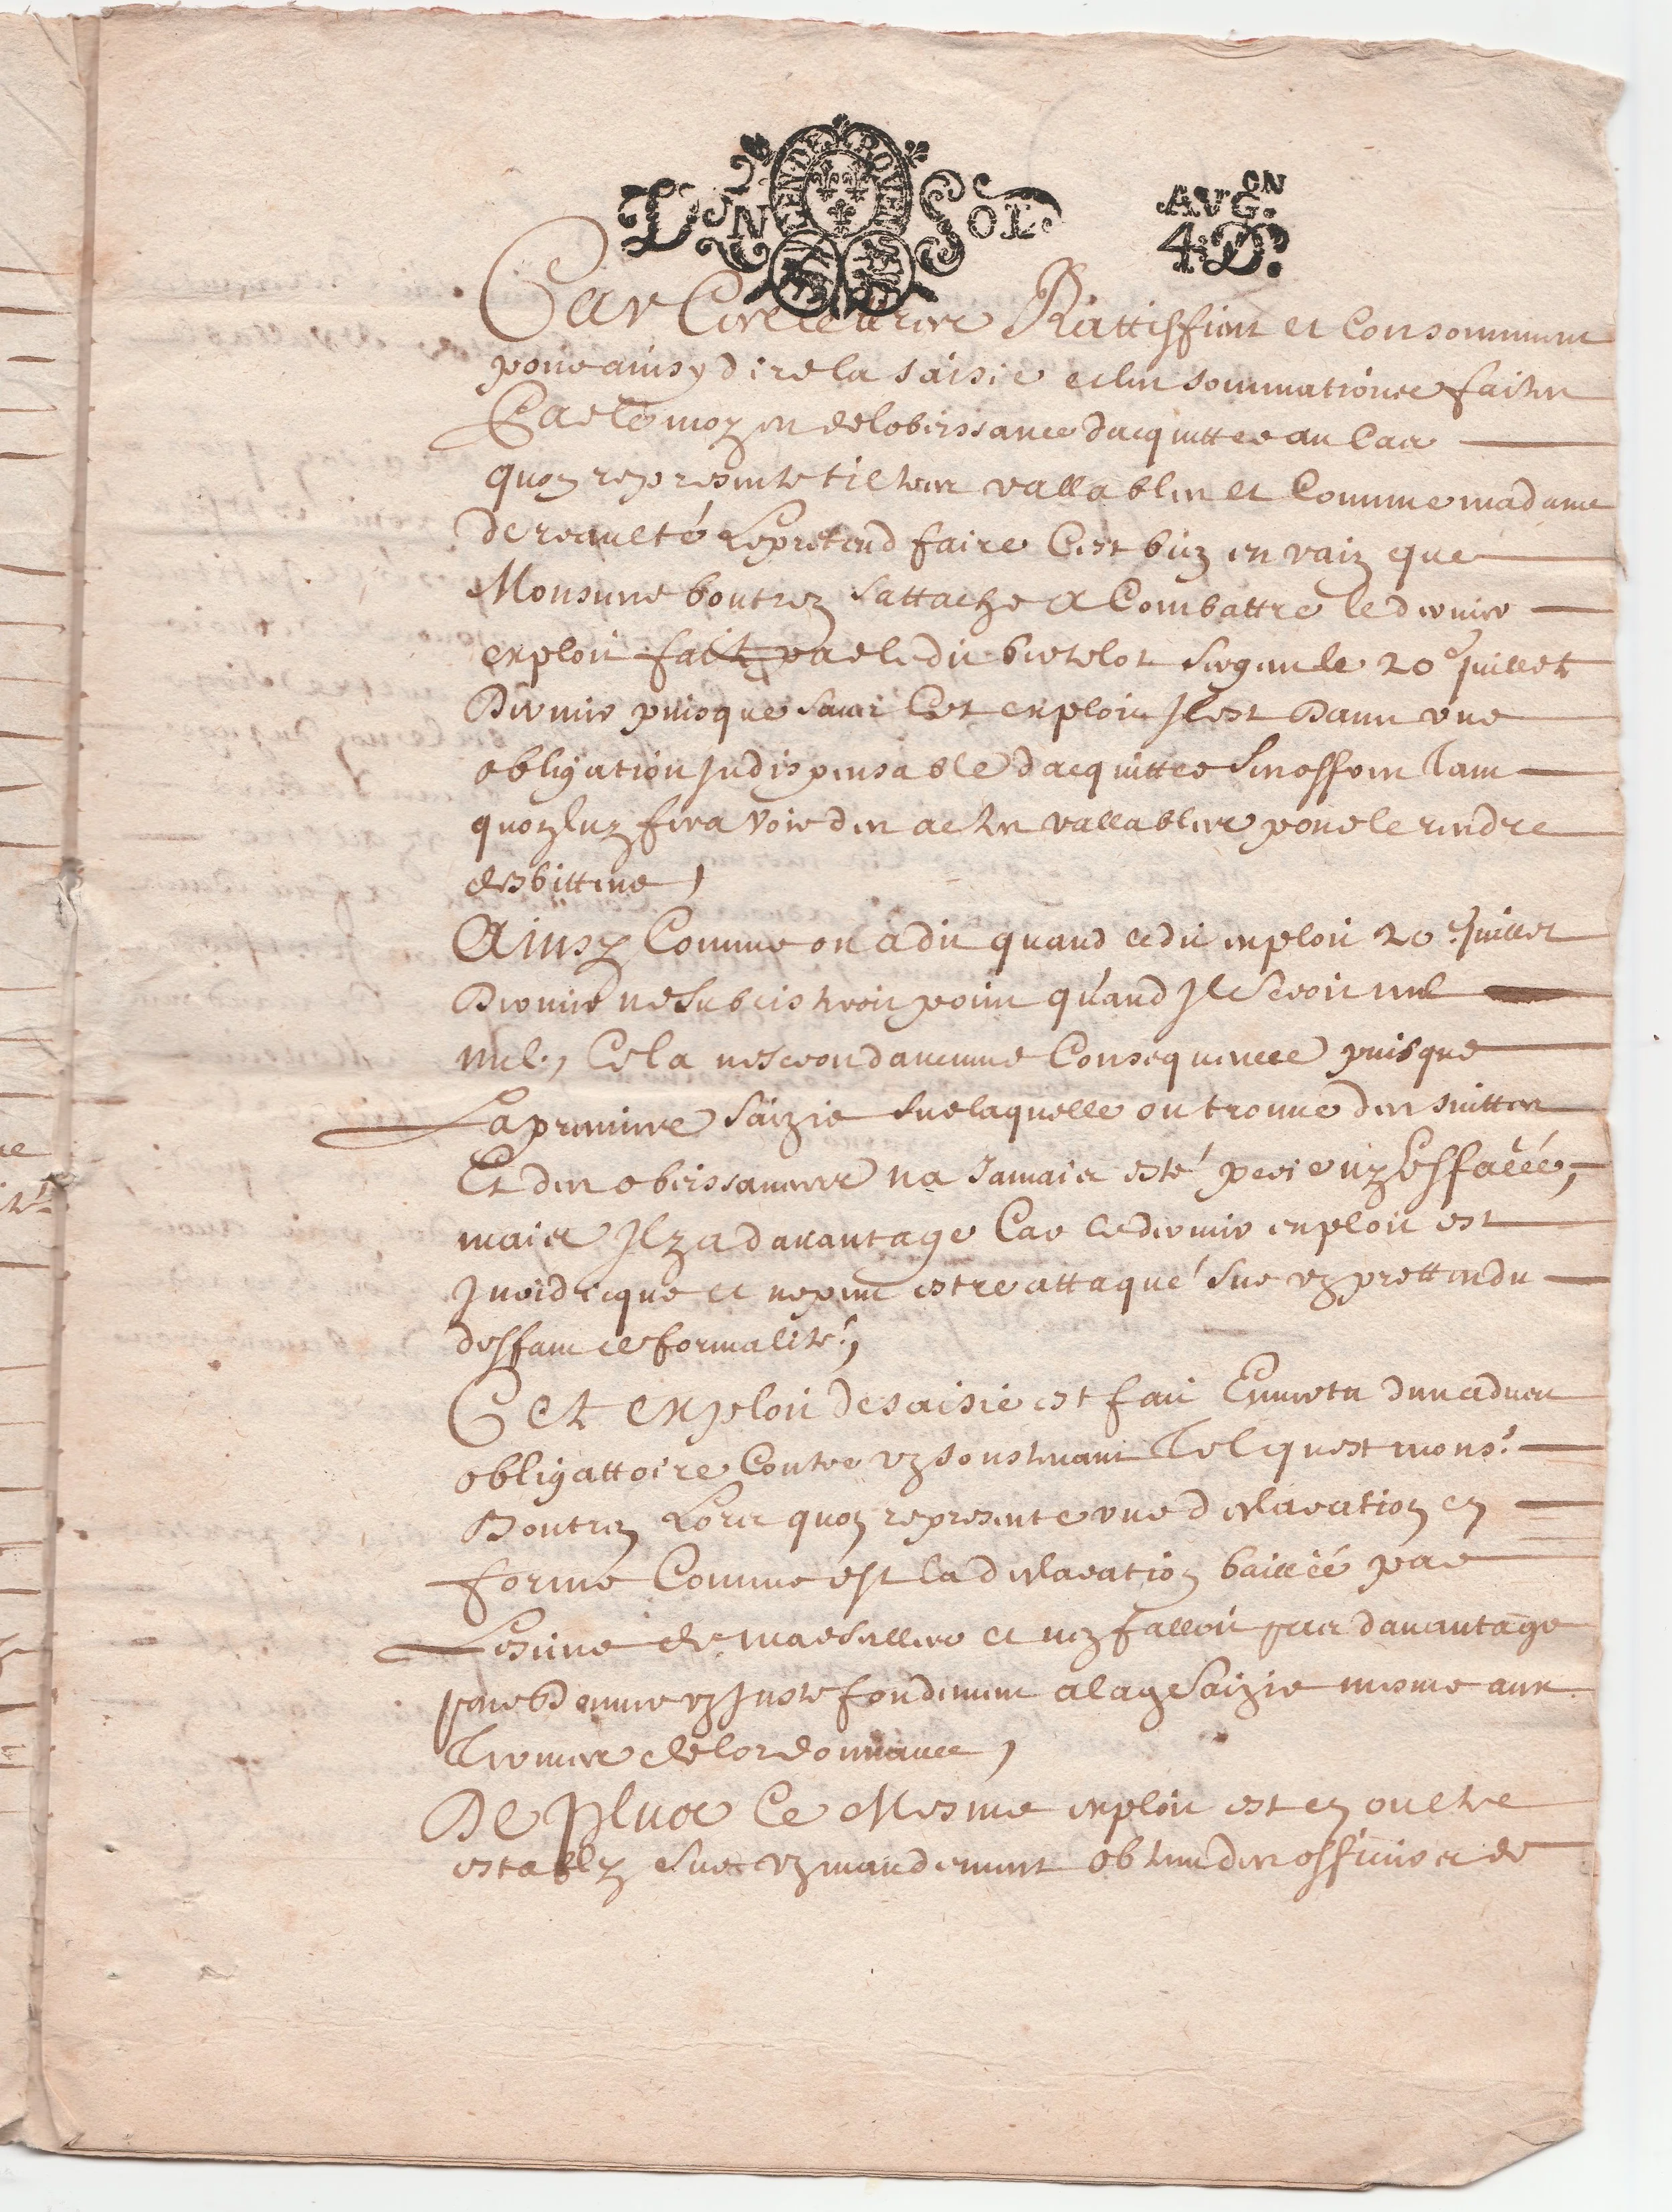 DEN SOL.
AVG.ON
4.D.
Car Rattiffient et Consomment
pour ainsy dire la saisie et les sommations faites
Par le moyen de lobeissance dacquitter au Cas
quoy representetiltres vallables et Comme madame
de reaulté le pretend faire Cest bien en vain que
Monsieur boutrez sattache a Combattre le dernier
exploit fait par ledit bertelot sergent le 20e juillet
Dernier puisque sans Cet exploit Il est Dans une
obligation Indispensable dacquitter ses offres tant
quon luy fera voir des actes vallables pour le rendre
debitteur,
Ainsy Comme on a dit quand ledit exploit 20e juillet
Dernier ne subsisteroit point quand Il seroit nul
nul, Cela ne seroit daucune Consequence puisque
La premiere saizie sur laquelle on trouve des suittes
Et des obeissances na Jamais esté perie ny Effacée,
mais Il y a davantage Car ledernier exploit est
Juridicque et ne peut estre attaqué sur un prettendu
deffaut de formalité,
Cet Exploit de saisie est fait En vertu dun adveu
obligattoire Contre un soustenant Tel quest mons.r
Boutrez Lors quon represente une declaration en
forme Comme est la declaration baillée par
Lesieur de marsillers et ny falloit pas davantage
pour Donner un Juste fondement a la saizie mesme aux
Termes de lordonnance,
De Plus Ce Mesme exploit est en oultre
estably sur un mandement obtenu des officiers de